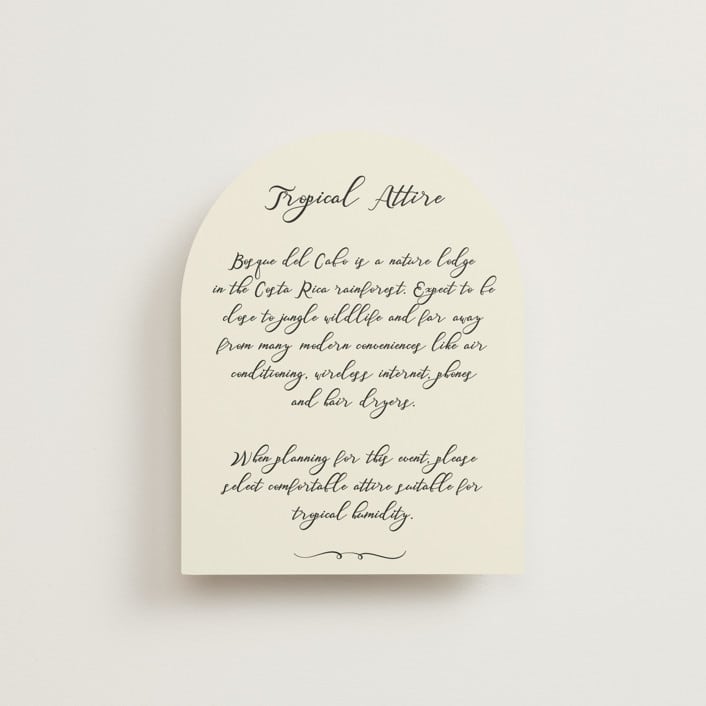 Tropical Attire
Bosque del Cabo is a nature lodge
in the Costa Rica rainforest. Expect to be
close to jungle wildlife and far away
from many modern conveniences like air
conditioning, wireless internet, phones
and hair dryers.
When planning for this event, please
select comfortable attire suitable for
tropical humidity.